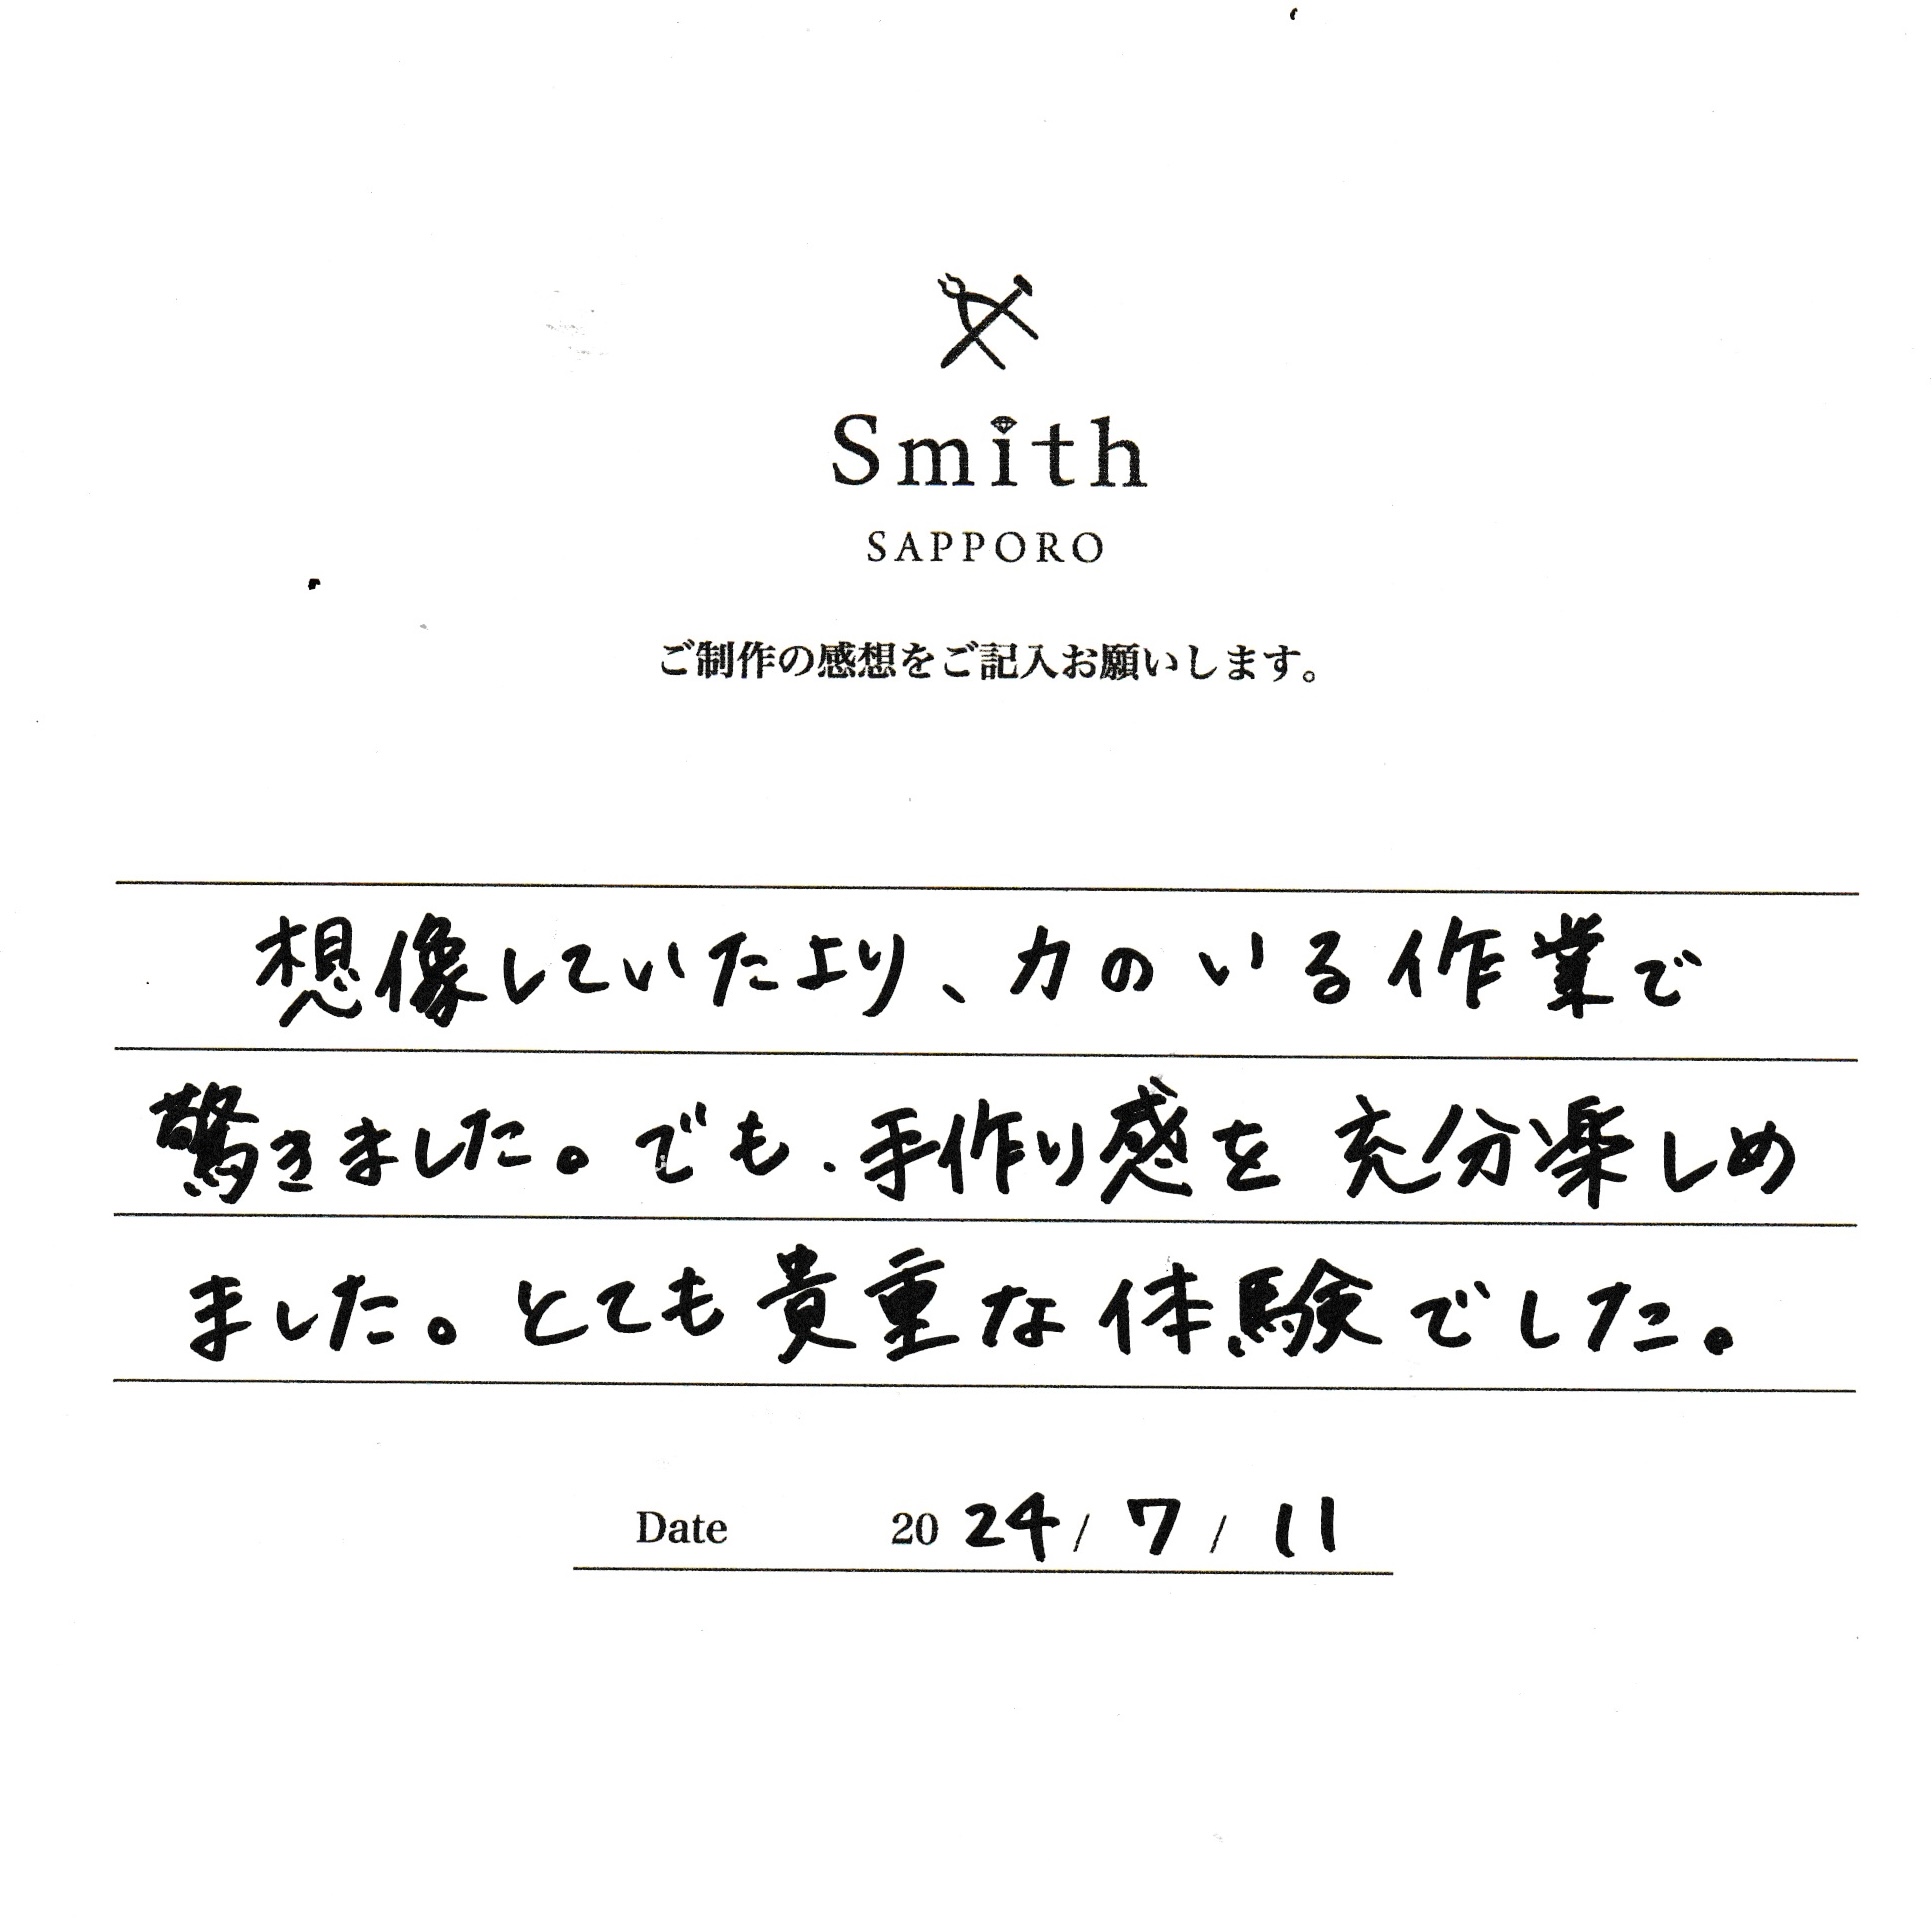 Smith
SAPPORO
ご制作の感想をご記入お願いします。
想像していたより、力のいる作業で
驚きました。でも、手作り感を充分楽しめ
ました。とても貴重な体験でした。
Date 2024/7/11